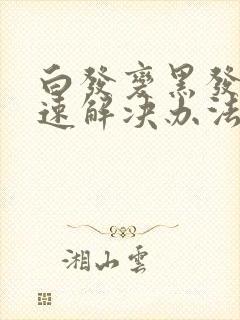 白發變黑發
速解決办法
湘山雲